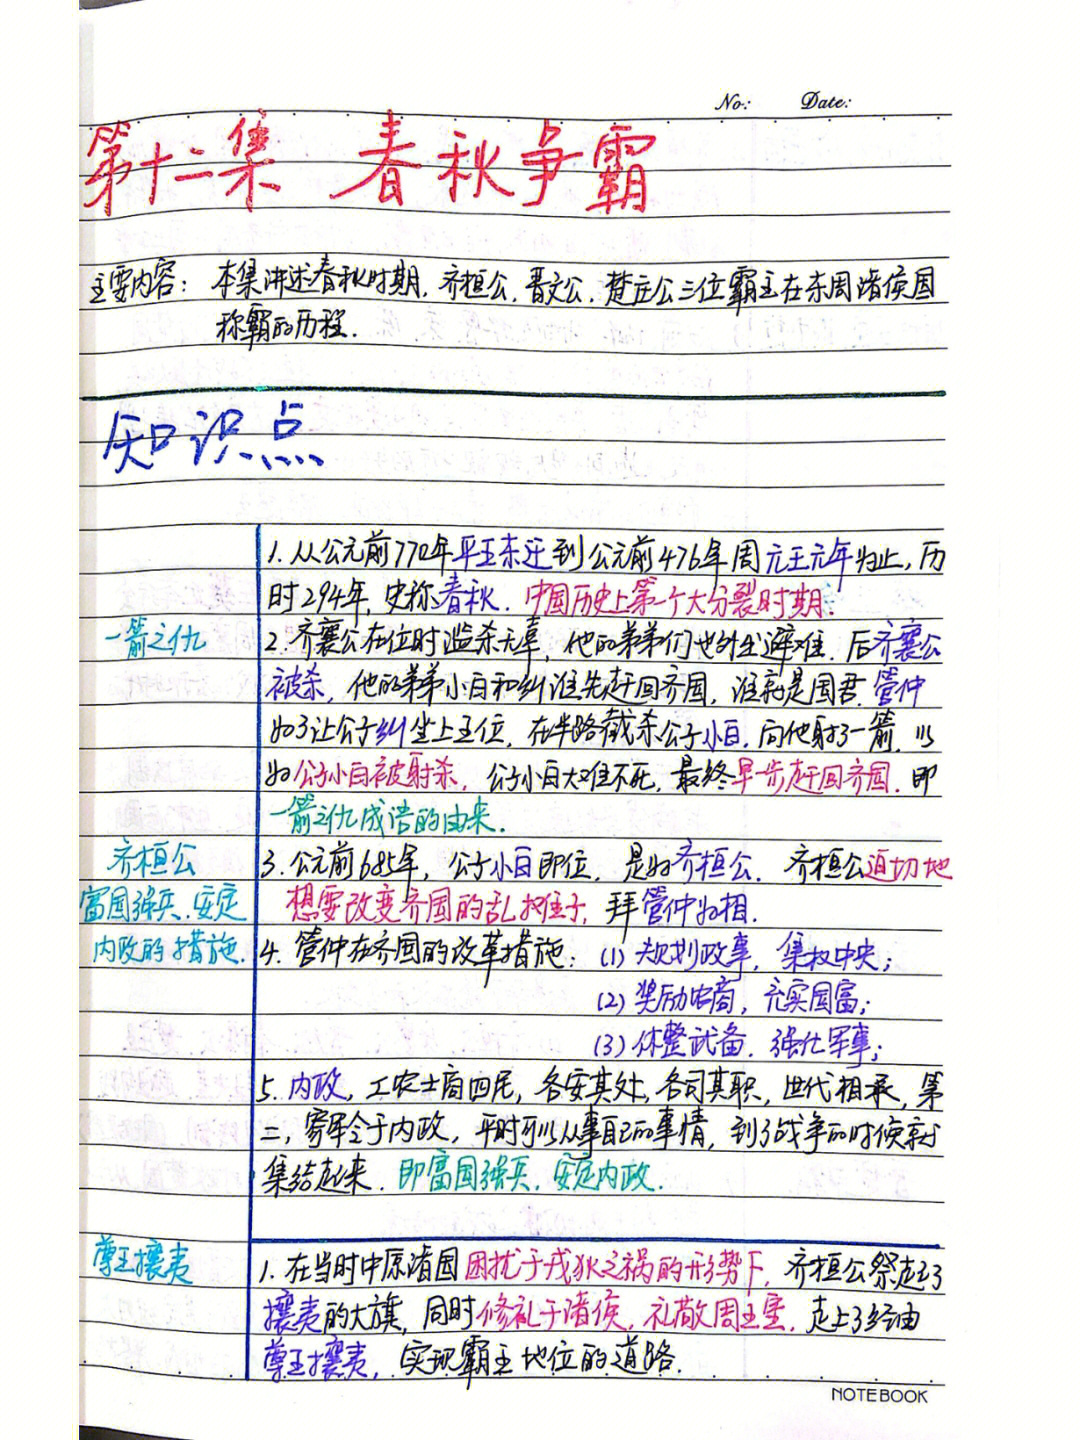 No: Date:
第十二集 春秋争霸
主要内容：本集讲述春秋时期，齐桓公，晋文公，楚庄公三位霸主在东周诸侯国
称霸的历程．
知识点
1. 从公元前770年平王东迁到公元前476年周元王元年为止，历
时294年，史称春秋．中国历史上第一个大分裂时期．
一箭之仇
2. 齐襄公在位时滥杀无辜，他的弟弟们也外出避难．后齐襄公
被杀，他的弟弟小白和纠谁先赶回齐国，谁就是国君．管仲
为了让公子纠坐上王位，在半路截杀公子小白．向他射了一箭，以
为公子小白被射杀，公子小白大难不死，最终早一步赶回齐国．即
一箭之仇成语的由来．
齐桓公
富国强兵．安定
内政的措施．
3. 公元前685年，公子小白即位，是为齐桓公．齐桓公迫切地
想要改变齐国的乱摊子，拜管仲为相．
4. 管仲在齐国的改革措施：(1) 规划政事，集权中央；
(2) 奖励农商，充实国富；
(3) 休整武备．强化军事；
5. 内政，工农士商四民，各安其处，各司其职，世代相承，第
二，寄军令于内政，平时可以从事自己的事情，到了战争的时候就
集结起来．即富国强兵．安定内政．
尊王攘夷
1. 在当时中原诸国困扰于戎狄之祸的形势下，齐桓公祭起了
攘夷的大旗，同时修礼于诸侯，礼敬周王室．走上了经由
尊王攘夷，实现霸主地位的道路．
NOTEBOOK